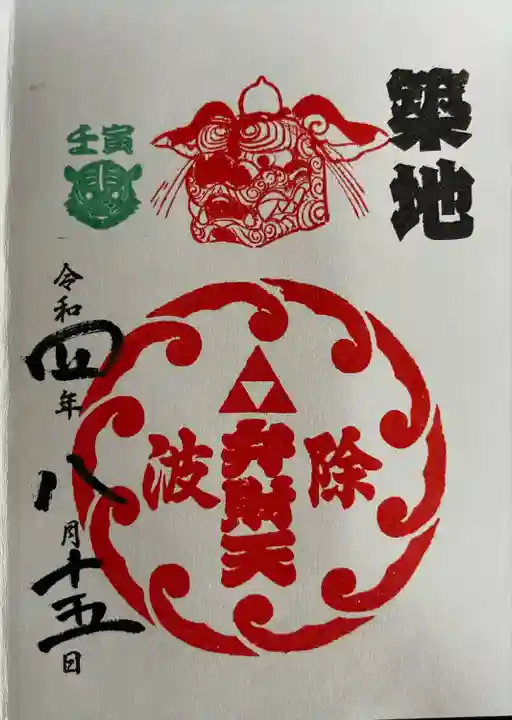 築地
壬寅
除波
弁財天
令和四年八月十五日